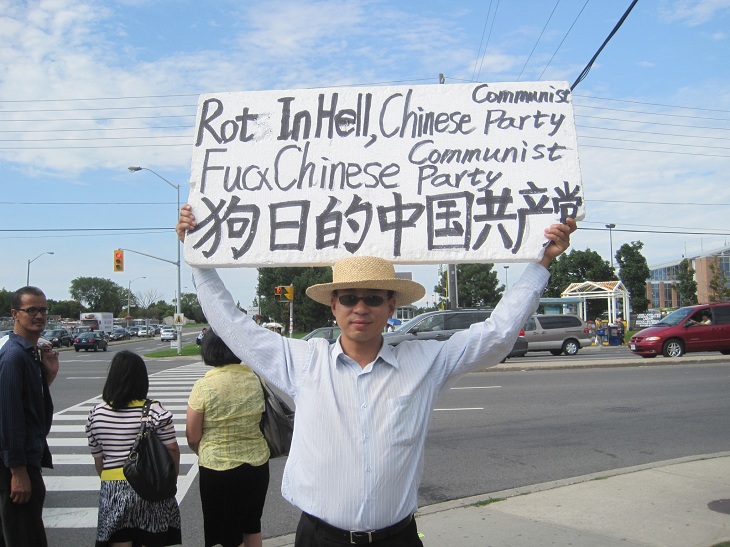 Rot In Hell, Chinese Communist Party
Fucx Chinese Communist Party
狗日的中国共产党